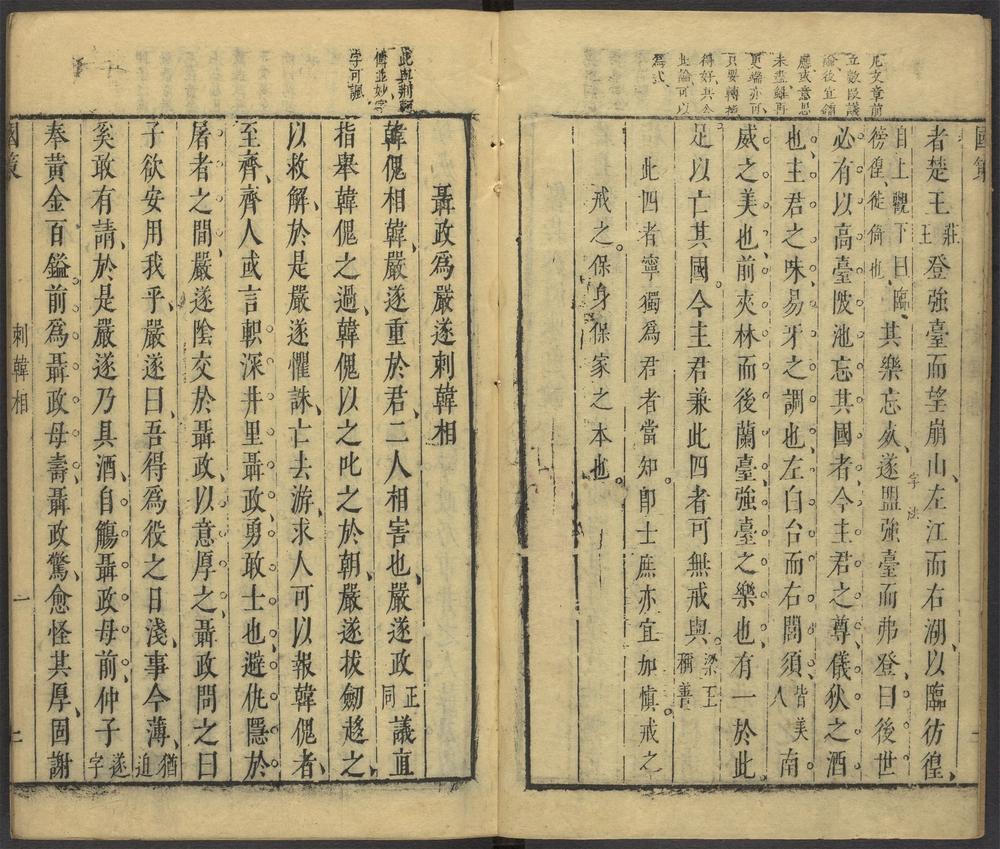 凡文章前
立數段議
論後宜鎖
應或意思
未盡雖再
更端亦可
只要轉換
得好共今
此論可以
為式
國策
者楚王莊王登強臺而望崩山、左江而右湖、以臨彷徨、
自上觀下曰臨彷徨徙倚也、其樂忘死、遂盟強臺而弗登、曰後世
字法
必有以高臺陂池忘其國者、今主君之尊、儀狄之酒
也、主君之味、易牙之調也、左白台而右閭須、皆美人南
威之美也、前夾林而後蘭臺、強臺之樂也、有一於此
足以亡其國。今主君兼此四者可無戒與。梁王稱善
此四者寧獨為君者當知。卽士庶亦宜加愼戒之
戒之。保身保家之本也。
此與荆軻
傳並妙字
字可諷
聶政為嚴遂刺韓相
韓傀相韓、嚴遂重於君、二人相害也、嚴遂政正同議直
指舉韓傀之過、韓傀以之叱之於朝、嚴遂拔劒趍之、
以救解、於是嚴遂懼誅、亡去游、求人可以報韓傀者、
至齊、齊人或言軹深井里聶政、勇敢士也、避仇隱於
屠者之間、嚴遂陰交於聶政、以意厚之、聶政問之曰
子欲安用我乎、嚴遂曰、吾得為役之日淺、事今薄、猶迫
奚敢有請、於是嚴遂乃具酒、自觴聶政母前、仲子遂字
奉黃金百鎰、前為聶政母壽、聶政驚、愈怪其厚、固謝
國策
刺韓相
一